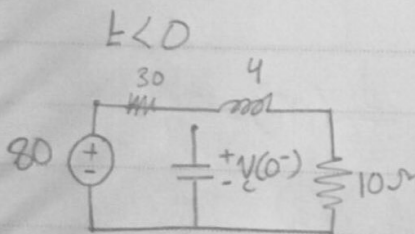 t<0
30
4
80
+
-
+
-
Vc(0⁻)
10Ω